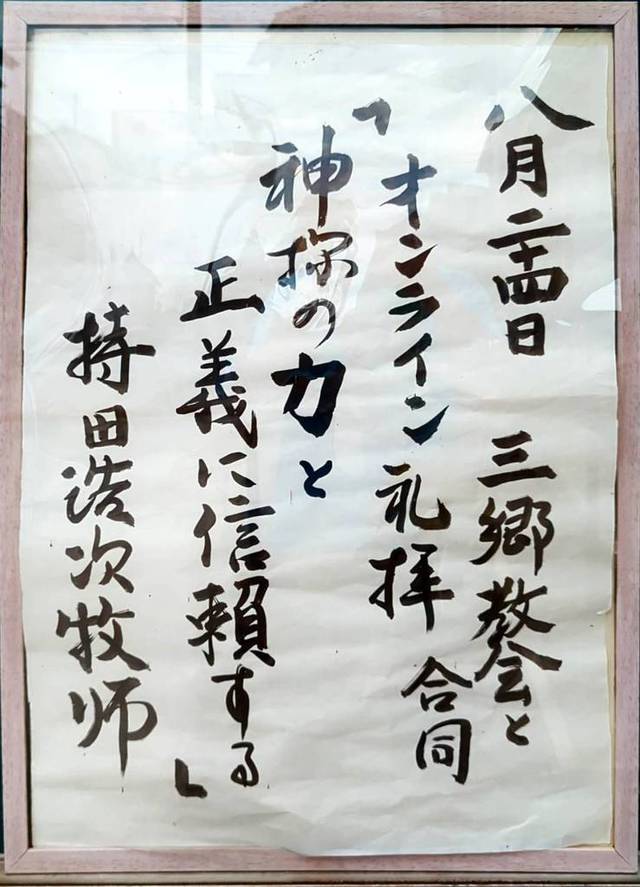 八月二十四日 三郷教会と
オンライン礼拝 合同
「神様の力と
正義に信頼する」
持田浩次牧師